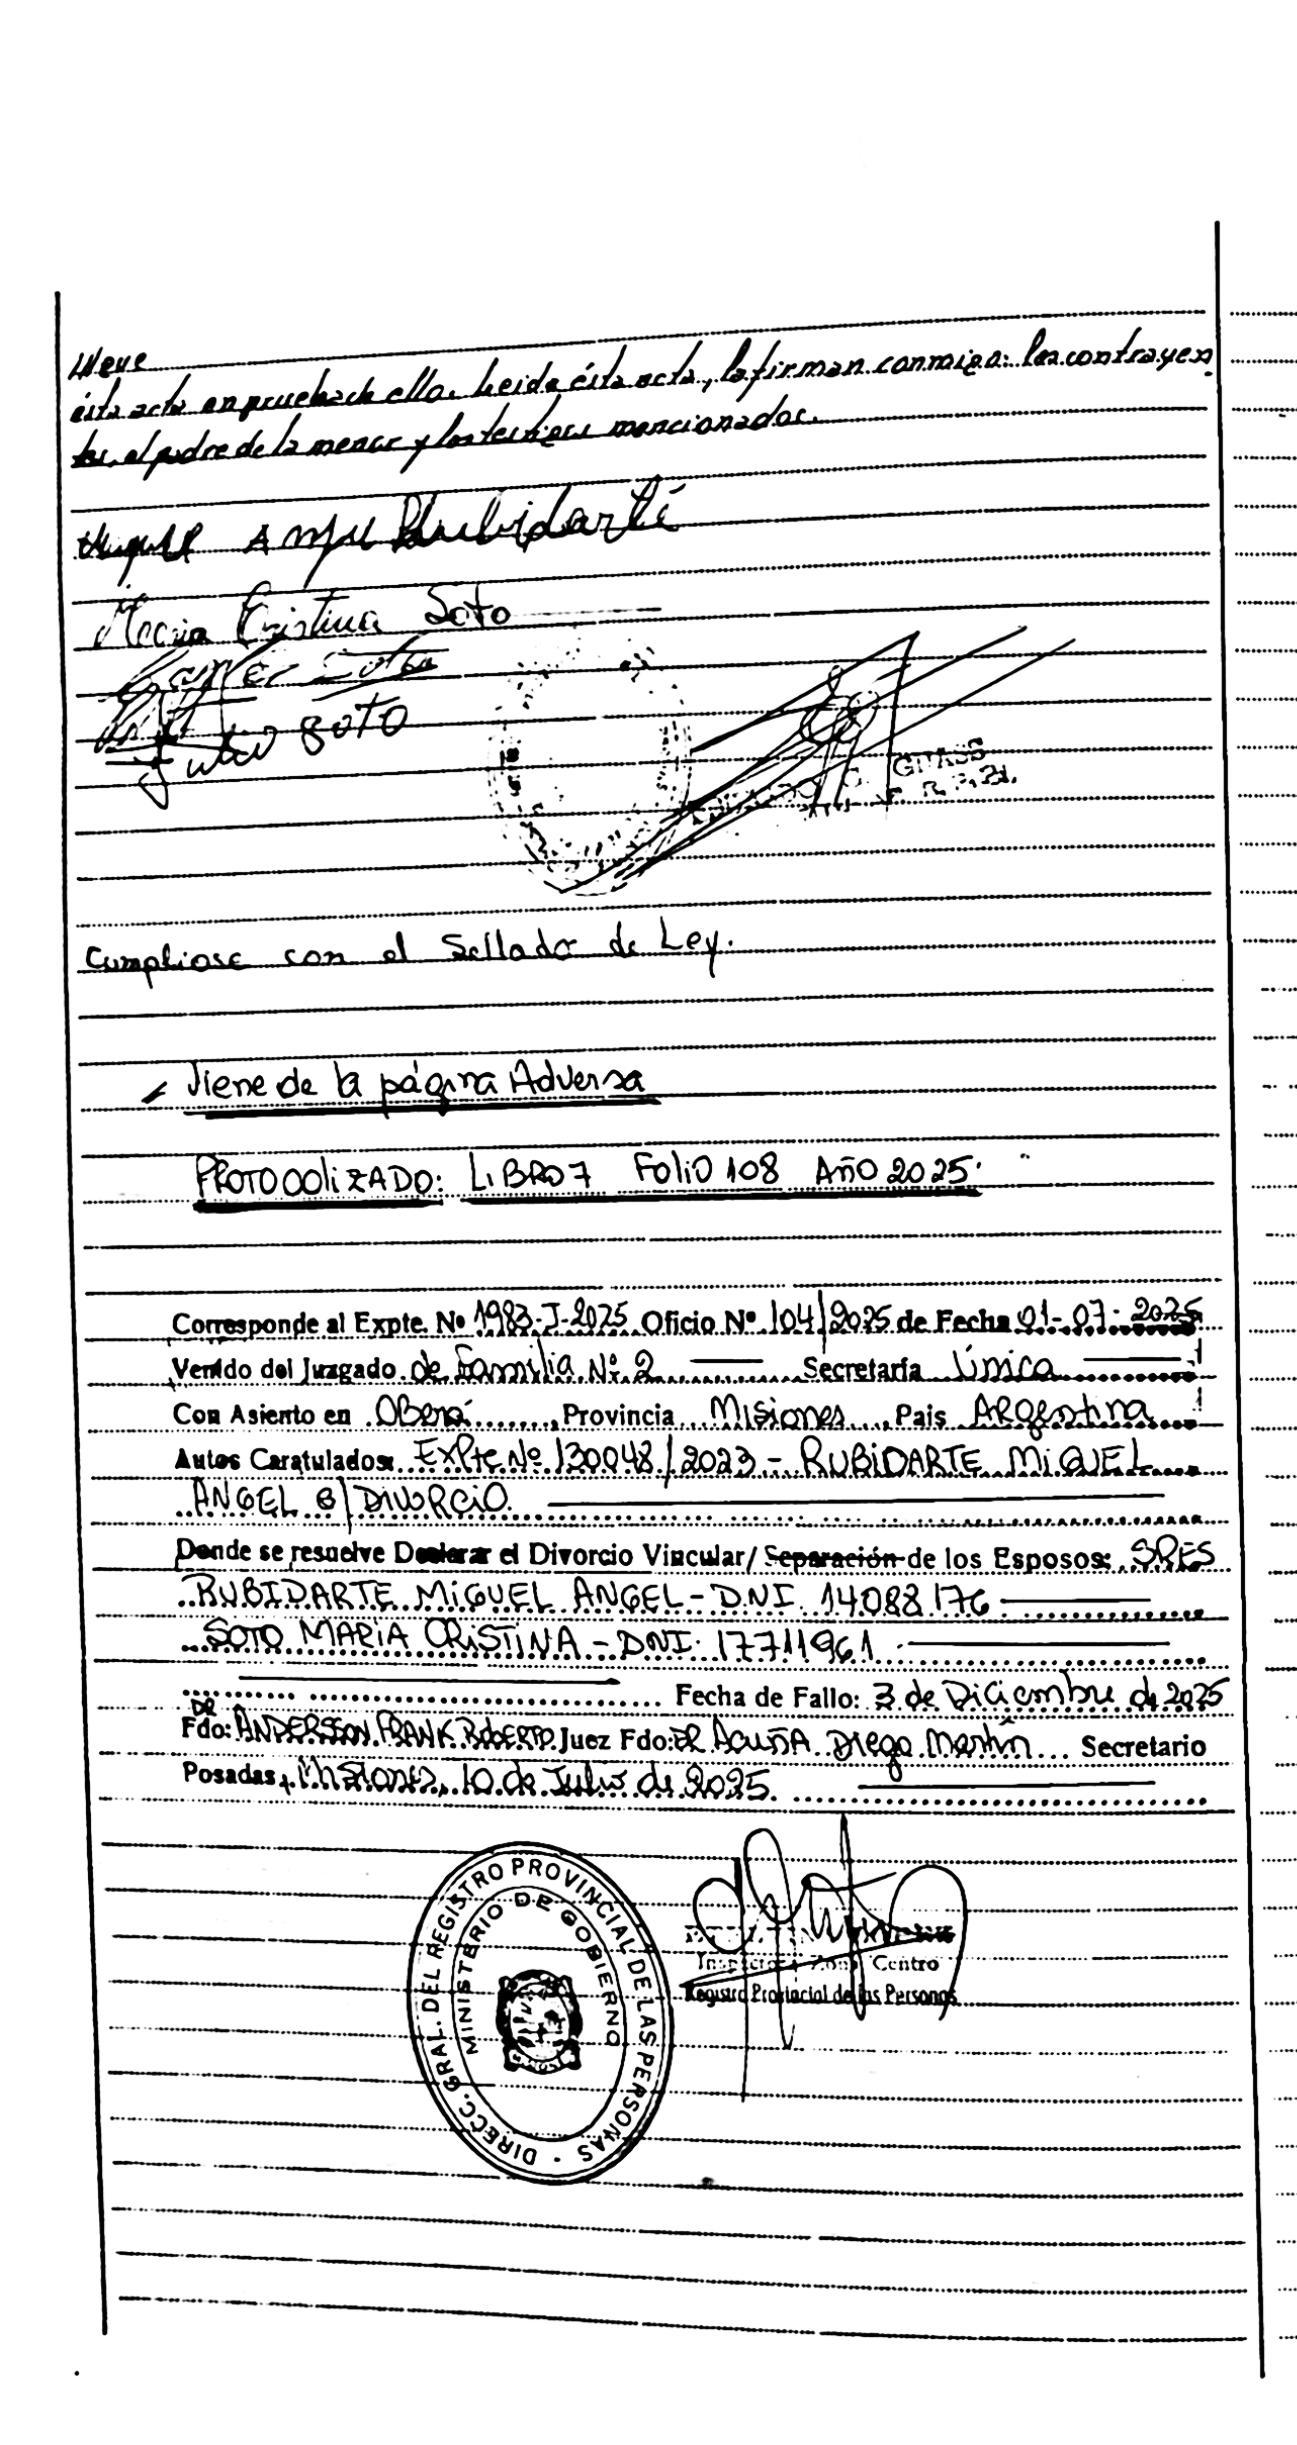 ésta acta en prueba de ello. Leida ésta acta, la firman conmigo: los contrayen
tes, el padre de la menor y los testigos mencionados.
Miguel Angel Rubidarte
Maria Cristina Soto
Soto
Julio Soto
GHASS
Cumpliose con el Sellado de Ley.
Viene de la página Adversa
PROTOCOLIZADO: LIBRO 7 Folio 108 Año 2025.
Corresponde al Expte. Nº 1983-J-2025 Oficio Nº 104/2025 de Fecha 01-07-2025
Venido del Juzgado de Familia Nº 2 Secretaría Única
Con Asiento en Oberá, Provincia Misiones, Pais Argentina
Autos Caratulados: Expte Nº 130048/2023 - RUBIDARTE MiGUEL
ANGEL S/ DIVORCIO.
Donde se resuelve Declarar el Divorcio Vincular/ Separación de los Esposos: SRES
RUBIDARTE MiGUEL ANGEL - DNI. 14088176
SOTO MARIA CRISTINA - DNI: 17711961.
Fecha de Fallo: 3 de Diciembre de 2025
DR
Fdo: ANDERSSON FRANK ROBERTO Juez Fdo: DR Acuña Diego Martín Secretario
Posadas, Misiones, 10 de Julio de 2025.
DIRECC. GRAL. DEL REGISTRO PROVINCIAL DE LAS PERSONAS
MINISTERIO DE GOBIERNO
Inspectora Zona Centro
Registro Provincial de las Personas